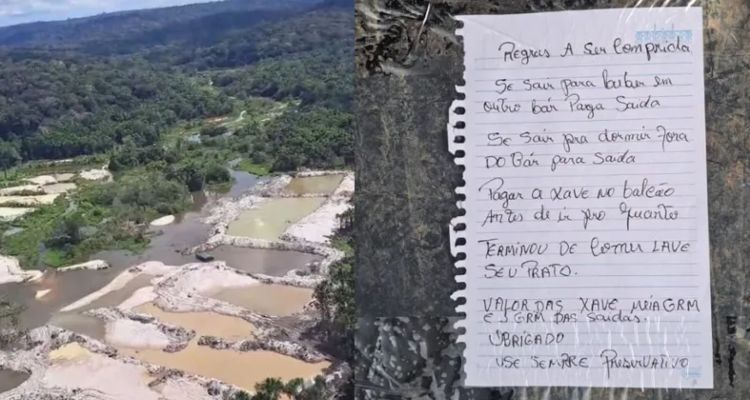 Regras A Ser Comprida
Se Sair para beber em
outro bár Paga Saida
Se Sair pra dormir Fora
DO Bár para Saida
Pagar a xave no balcão
Antes de ir pro quarto
TERMINOU DE Comer LAVE
SEU PRATO.
VALOR DAS XAVE, MEIA GRM
E 5 GRM DAS SAIDAS.
OBRIGADO
USE SEMPRE PRESERVATIVO